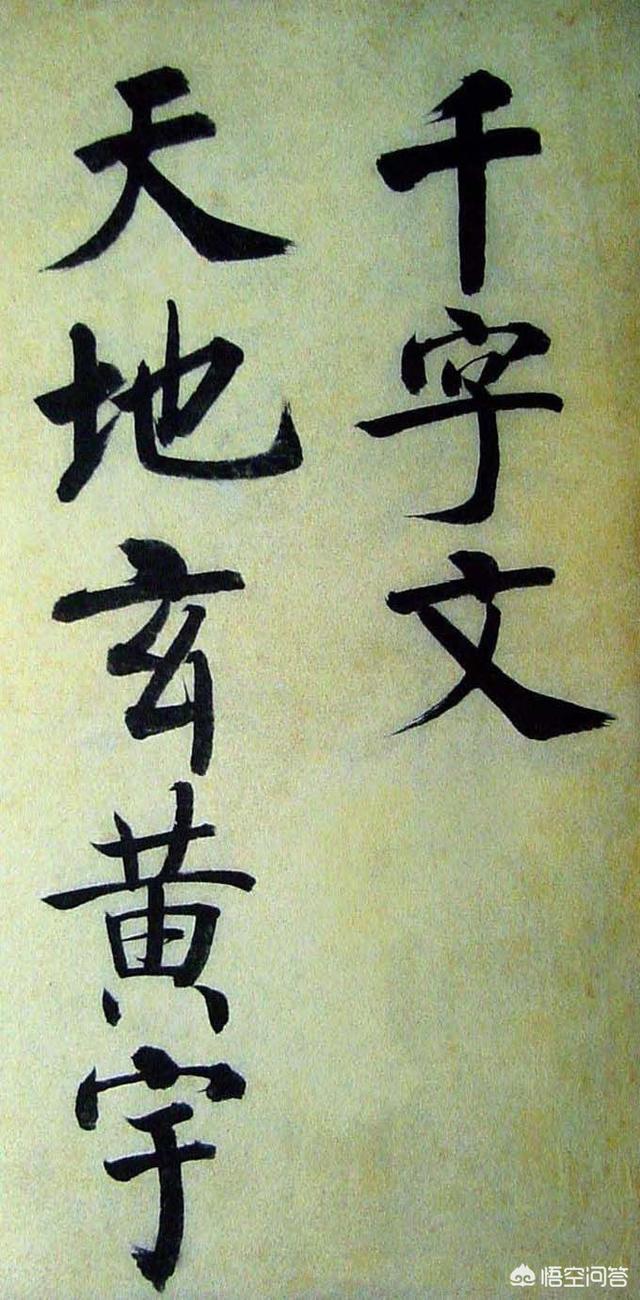 千字文
天地玄黄宇
悟空问答